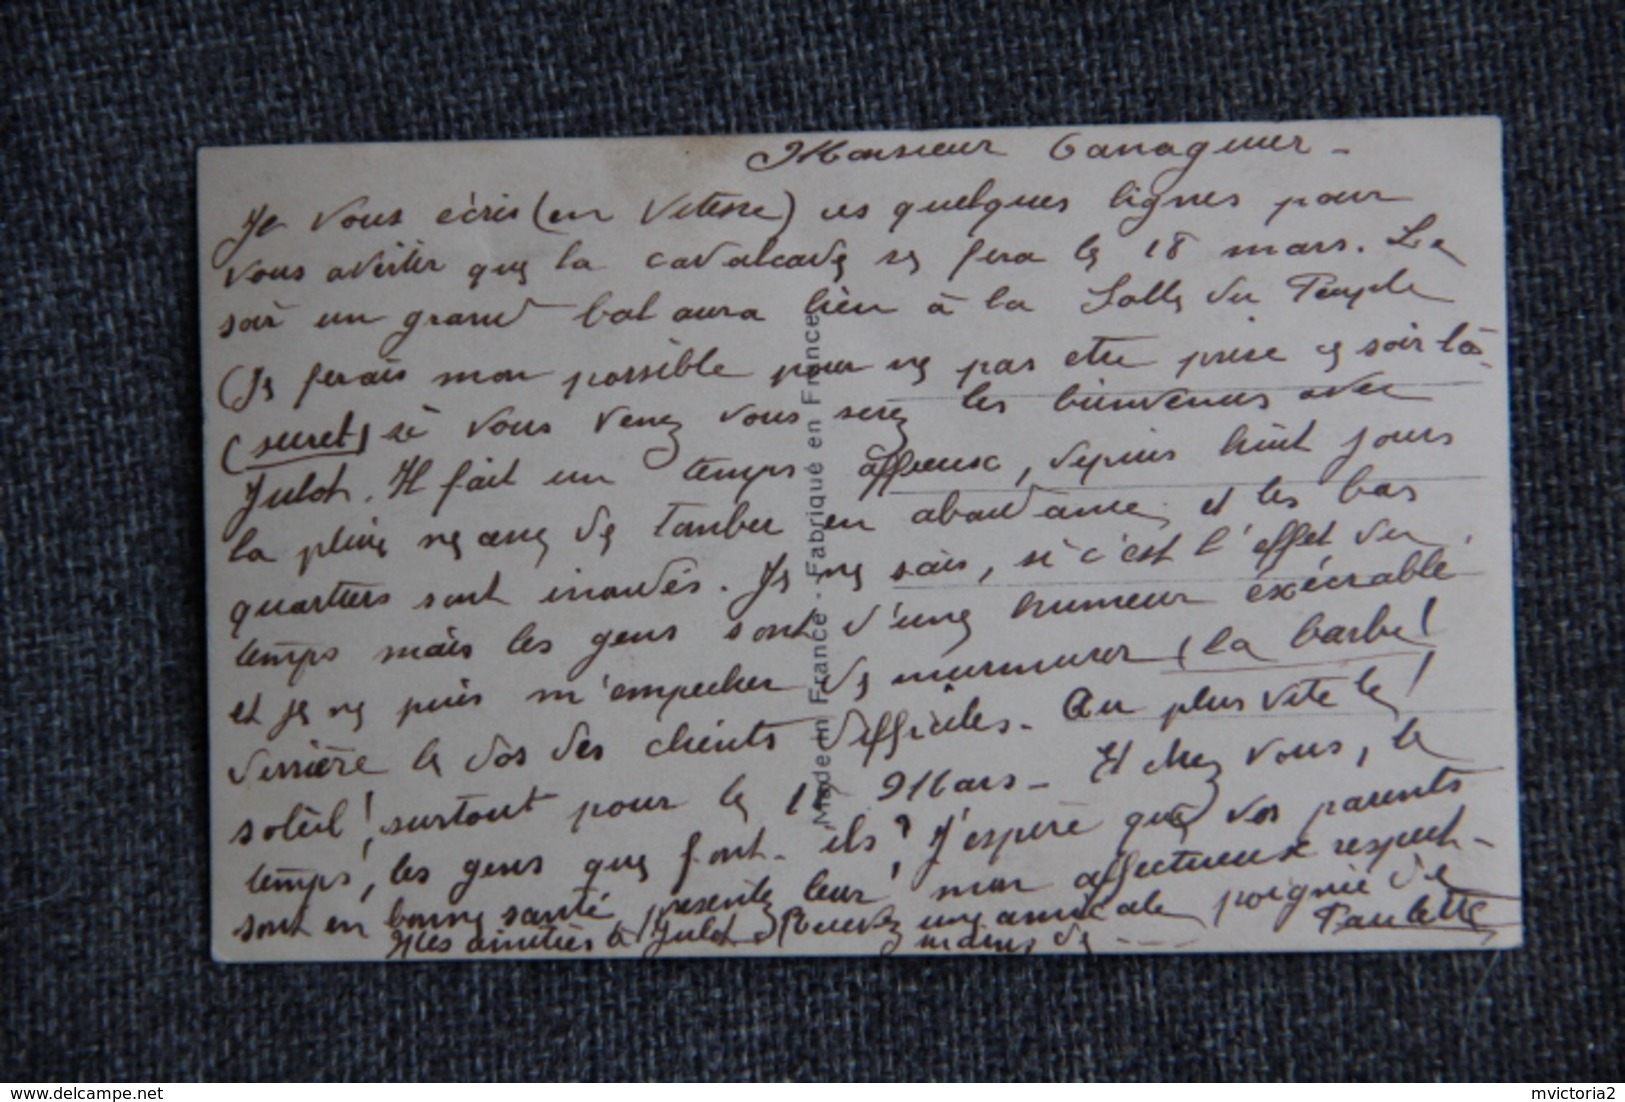 Monsieur Canaguier -
Je vous écris (en vitesse) ces quelques lignes pour
vous avertir que la cavalcade se fera le 18 mars. Le
soir un grand bal aura lieu à la Salle du Temple
(Je ferais mon possible pour ne pas etre prise ce soir là -
(secret) si vous venez vous serez les bienvenus avec
Julot. Il fait un temps affreux, depuis huit jours
la pluie ne cesse de tomber en abondance et les bas
quartiers sont inondés. Je ne sais, si c'est l'effet du
temps mais les gens sont d'une humeur exécrable
et je ne puis m'empecher de murmurer (la barbe!
derrière le dos des clients difficiles. Au plus vite le!
soleil! surtout pour le 18 Mars - Et chez vous, le
temps, les gens que font-ils? J'espère que vos parents
sont en bonne santé, presentez leur mon affectueux respect -
Mes amitiés à Julot Recevez une amicale poignée de
mains de ---- Paulette
Made in France - Fabriqué en France
mvictoria2